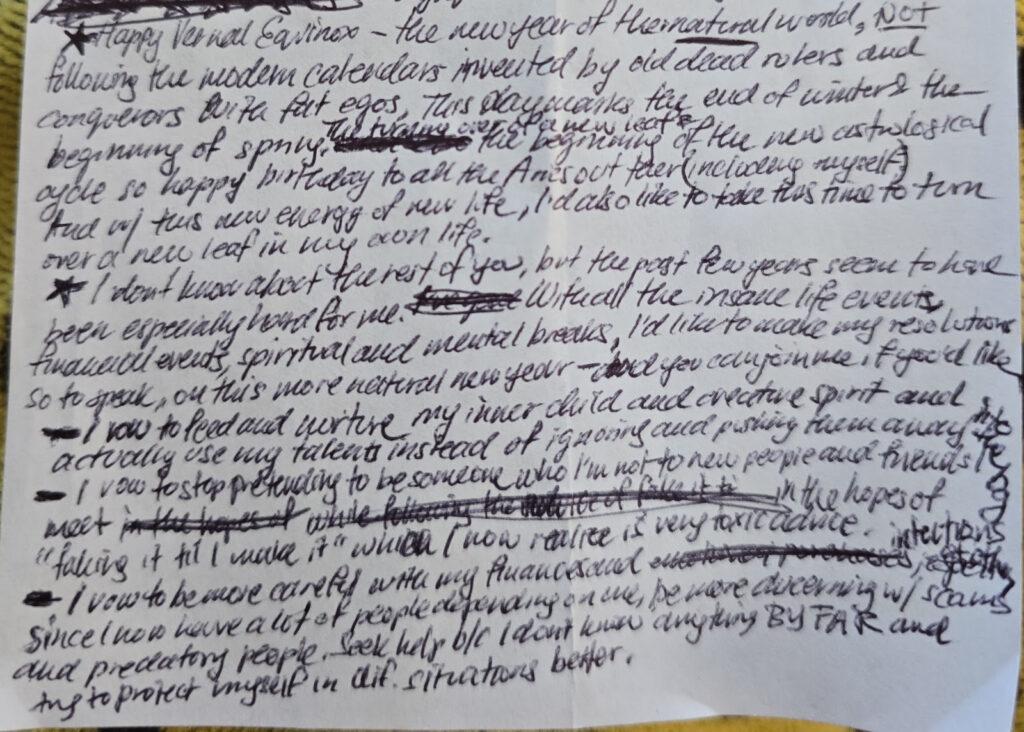 ★ Happy Vernal Equinox - the new year of the natural world, NOT
following the modern calendars invented by old dead rulers and
conquerors with fat egos. This day marks the end of winter & the
beginning of spring. The turning over of a new leaf & the beginning of the new astrological
cycle so happy birthday to all the Aries out ther (including myself)
And w/ this new energy of new life, I'd also like to take this time to turn
over a new leaf in my own life.
★ I don't know about the rest of you, but the past few years seem to have
been especially hard for me. With all the insane life events,
financial events, spiritual and mental breaks, I'd like to make my resolutions
so to speak, on this more natural new year - and you can join me if you'd like
- I vow to feed and nurture my inner child and creative spirit and
actually use my talents instead of ignoring and pushing them away
- I vow to stop pretending to be someone who I'm not to new people and friends I
meet in the hopes of while following the advice of fake it ti in the hopes of
"faking it til I make it" which I now realize is very toxic advice.
- I vow to be more careful with my finances and intections
since I now have a lot of people depending on me, be more discerning w/ scams
and predatory people. Seek help b/c I don't know anything BY FAR and
try to protect myself in dif. situations better.